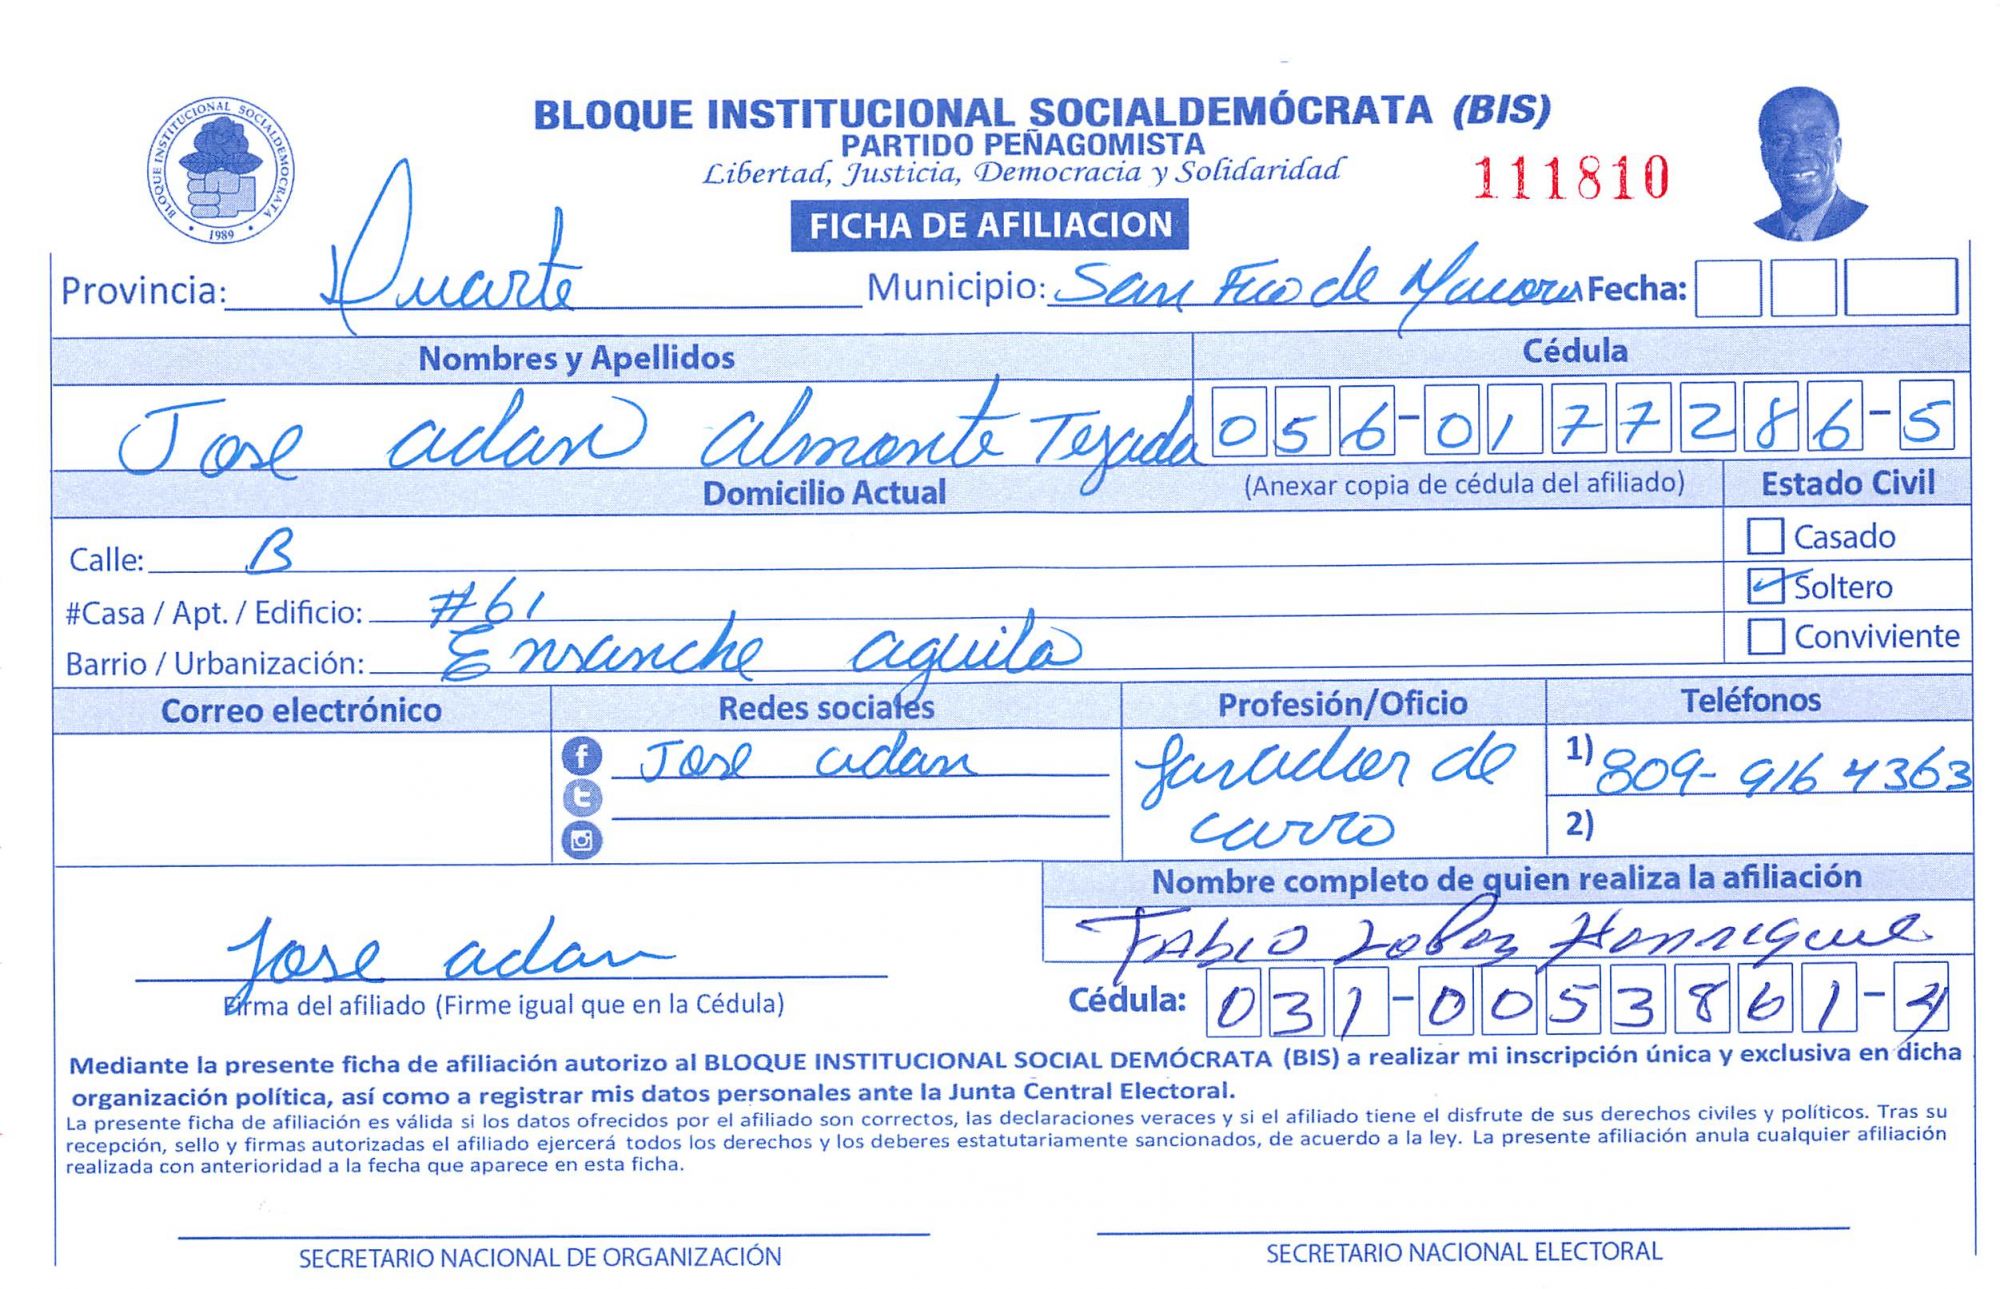 BLOQUE INSTITUCIONAL SOCIALDEMÓCRATA (BIS)
PARTIDO PEÑAGOMISTA
Libertad, Justicia, Democracia y Solidaridad
111810
BLOQUE INSTITUCIONAL SOCIALDEMOCRATA
1989
FICHA DE AFILIACION
Provincia: Duarte Municipio: San Fco de Macoris Fecha:
Nombres y Apellidos Cédula
Jose adan almonte Tejada 056-0177286-5
Domicilio Actual (Anexar copia de cédula del afiliado) Estado Civil
Calle: B Casado
#Casa / Apt. / Edificio: #61 Soltero
Barrio / Urbanización: Ensanche aguila Conviviente
Correo electrónico Redes sociales Profesión/Oficio Teléfonos
Jose adan de 1) 809-916 4363
carro 2)
Nombre completo de quien realiza la afiliación
Jose adan FAbIO Lopez Henriquez
Firma del afiliado (Firme igual que en la Cédula) Cédula: 031-0053861-4
Mediante la presente ficha de afiliación autorizo al BLOQUE INSTITUCIONAL SOCIAL DEMÓCRATA (BIS) a realizar mi inscripción única y exclusiva en dicha
organización política, así como a registrar mis datos personales ante la Junta Central Electoral.
La presente ficha de afiliación es válida si los datos ofrecidos por el afiliado son correctos, las declaraciones veraces y si el afiliado tiene el disfrute de sus derechos civiles y políticos. Tras su
recepción, sello y firmas autorizadas el afiliado ejercerá todos los derechos y los deberes estatutariamente sancionados, de acuerdo a la ley. La presente afiliación anula cualquier afiliación
realizada con anterioridad a la fecha que aparece en esta ficha.
SECRETARIO NACIONAL DE ORGANIZACIÓN SECRETARIO NACIONAL ELECTORAL